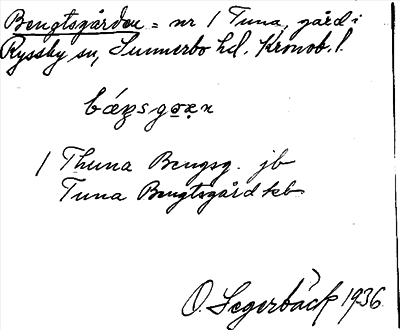 Bengtsgården = nr 1 Tuna, gård i
Ryssby sn, Sunnerbo hd. Kronob. l.
1 Thuna Bengsg. jb
Tuna Bengtsgård kb
O. Segerbäck 1936